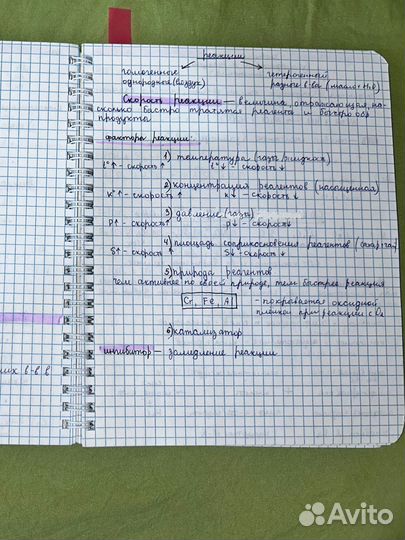 реакции
гомогенные
гетерогенные
однородное (воздух)
разное в-ва (масло + H₂O)
Скорость реакции — величина, отражающая, на-
сколько быстро тратятся реагенты и быстро обр
продукта
Факторы реакции:
1) температура (газы/жидкося)
t°↑ - скорость↑ t°↓ - скорость↓
2) концентрация реагентов (насыщенная)
К↑ - скорость↑ к↓ - скорость↓
3) давление (газы)
P↑ - скорость↑ p↓ - скорость↓
4) площадь соприкосновения реагентов
S↑ - скорость↑ S↓ - скорость↓
5) природа реагентов
чем активнее по своей природе, тем быстрее реакция
Cr, Fe, Al - покрывается оксидной
пленкой при реакции с O₂
6) катализатор
ингибитор — замедление реакции
их в-в в
Avito